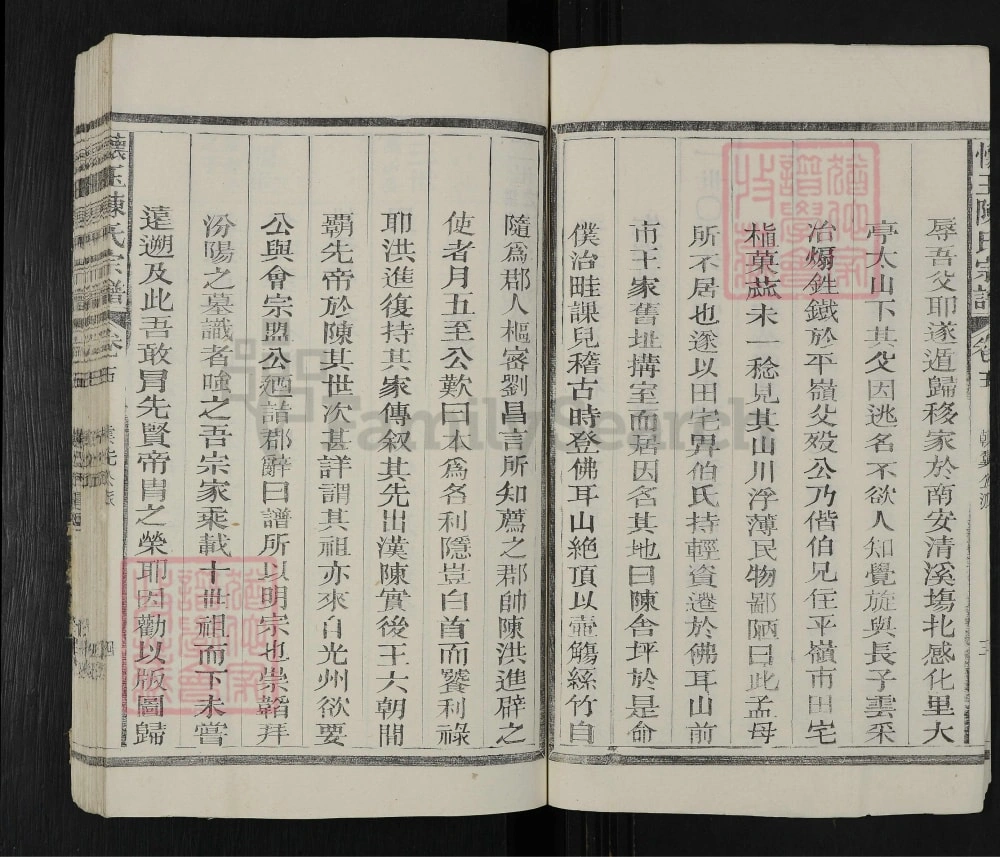 辱吾父耶遂遁歸移家於南安清溪塲北感化里大
亭太山下其父因逃名不欲人知覺旋與長子雲采
冶爛鉎鐵於平嶺父歿公乃偕伯兄住平嶺市田宅
植菓蔬未一稔見其山川浮薄民物鄙陋曰此孟母
所不居也遂以田宅畀伯氏持輕資遷於佛耳山前
市王家舊址搆室而居因名其地曰陳舍坪於是命
僕治畦課兒稽古時登佛耳山絶頂以壺觴絲竹自
隨爲郡人樞宻劉昌言所知薦之郡帥陳洪進辟之
使者月五至公歎曰本爲名利隱豈白首而饕利祿
耶洪進復持其家傳叙其先出漢陳實後王六朝間
覇先帝於陳其世次甚詳謂其祖亦來自光州欲要
公與會宗盟公廼詰郡辭曰譜所以明宗也崇韜拜
汾陽之墓識者嗤之吾宗家乘載十世祖而下未嘗
遠遡及此吾敢冒先賢帝胄之榮耶因勸以版圖歸
懷玉陳氏宗譜
卷
FamilySearch